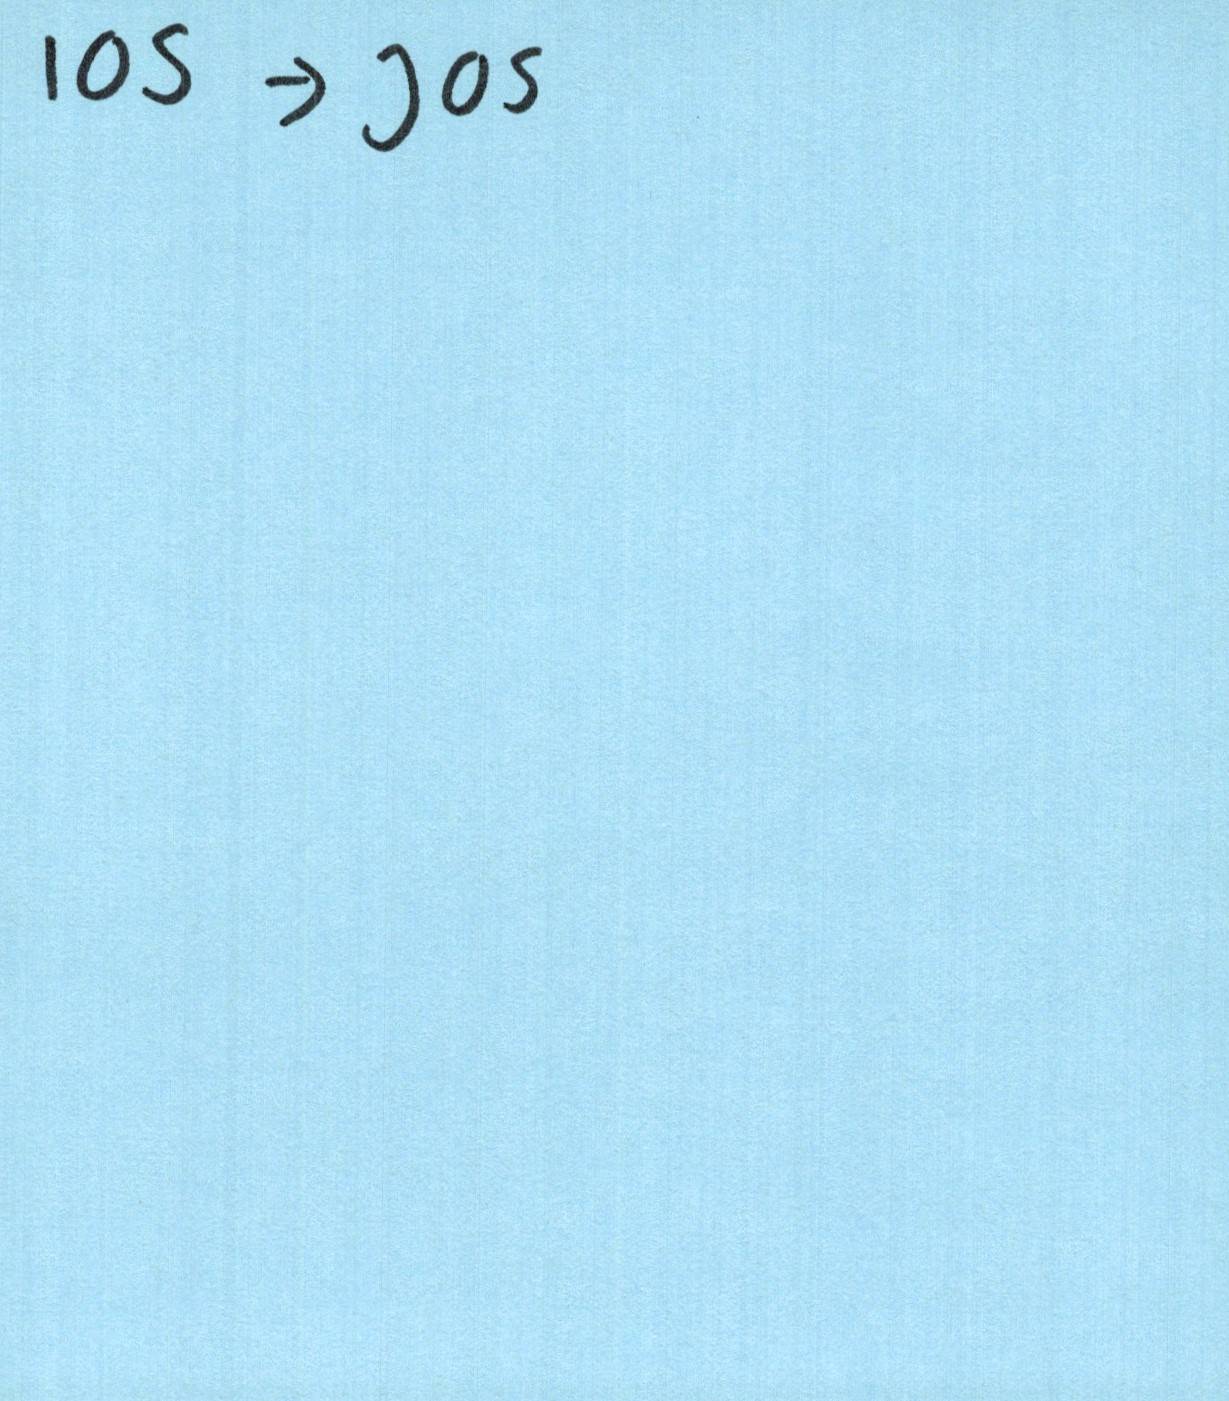 ios → jos